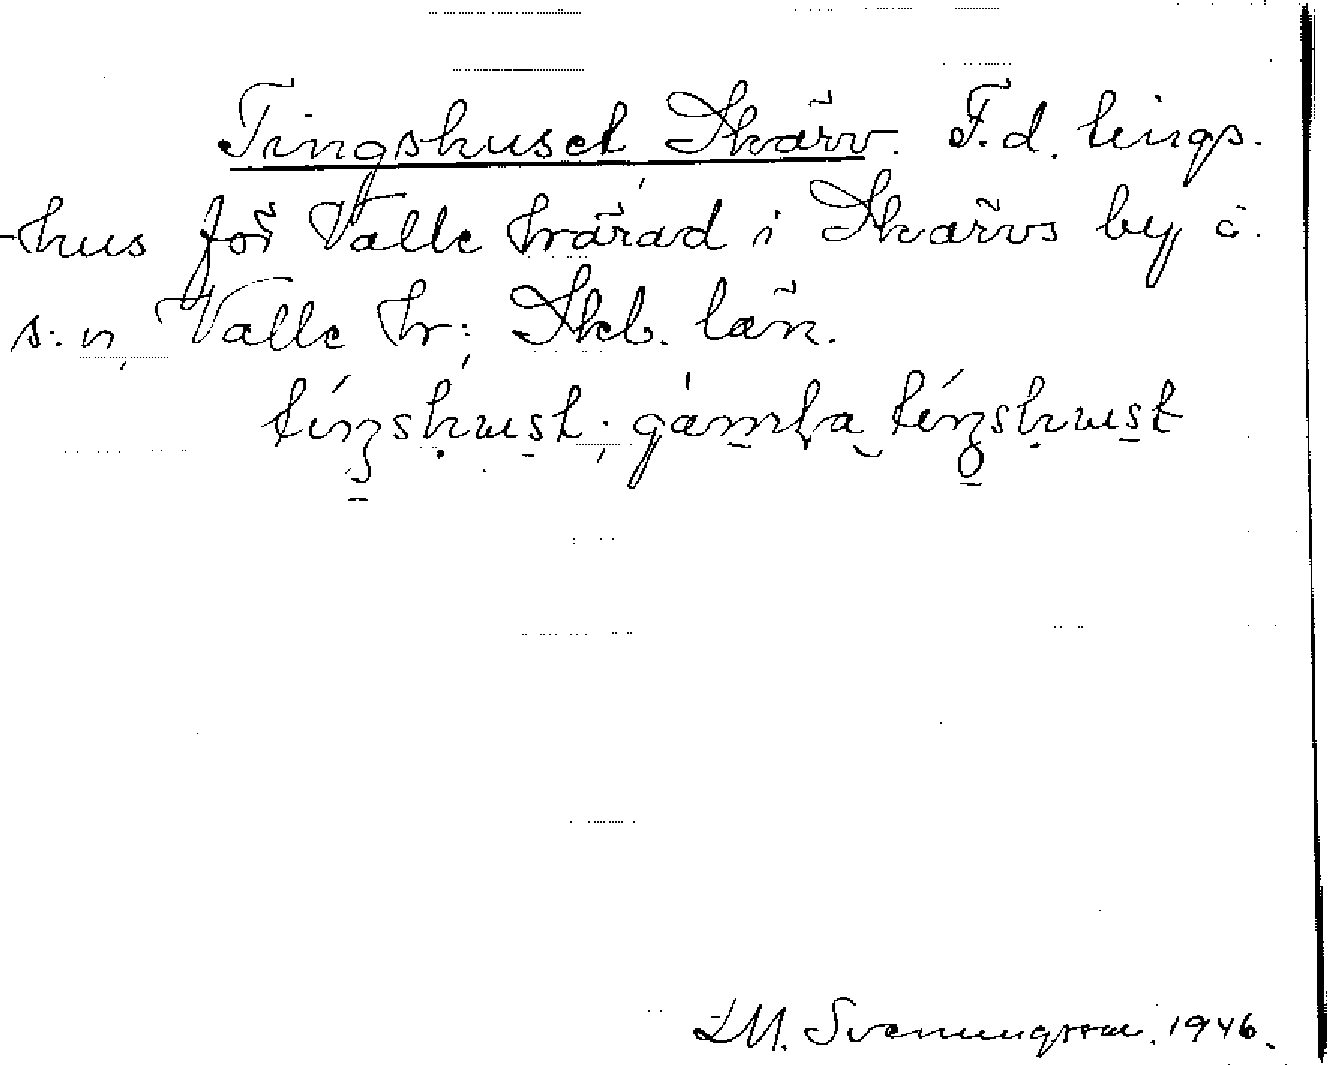 Tingshuset Skärv. F. d. tings-
-hus för Valle härad i Skärvs by o.
s:n, Valle hr; Skb. län.
tíŋshust; gamla tíŋshust
M. Svenungsson. 1946.